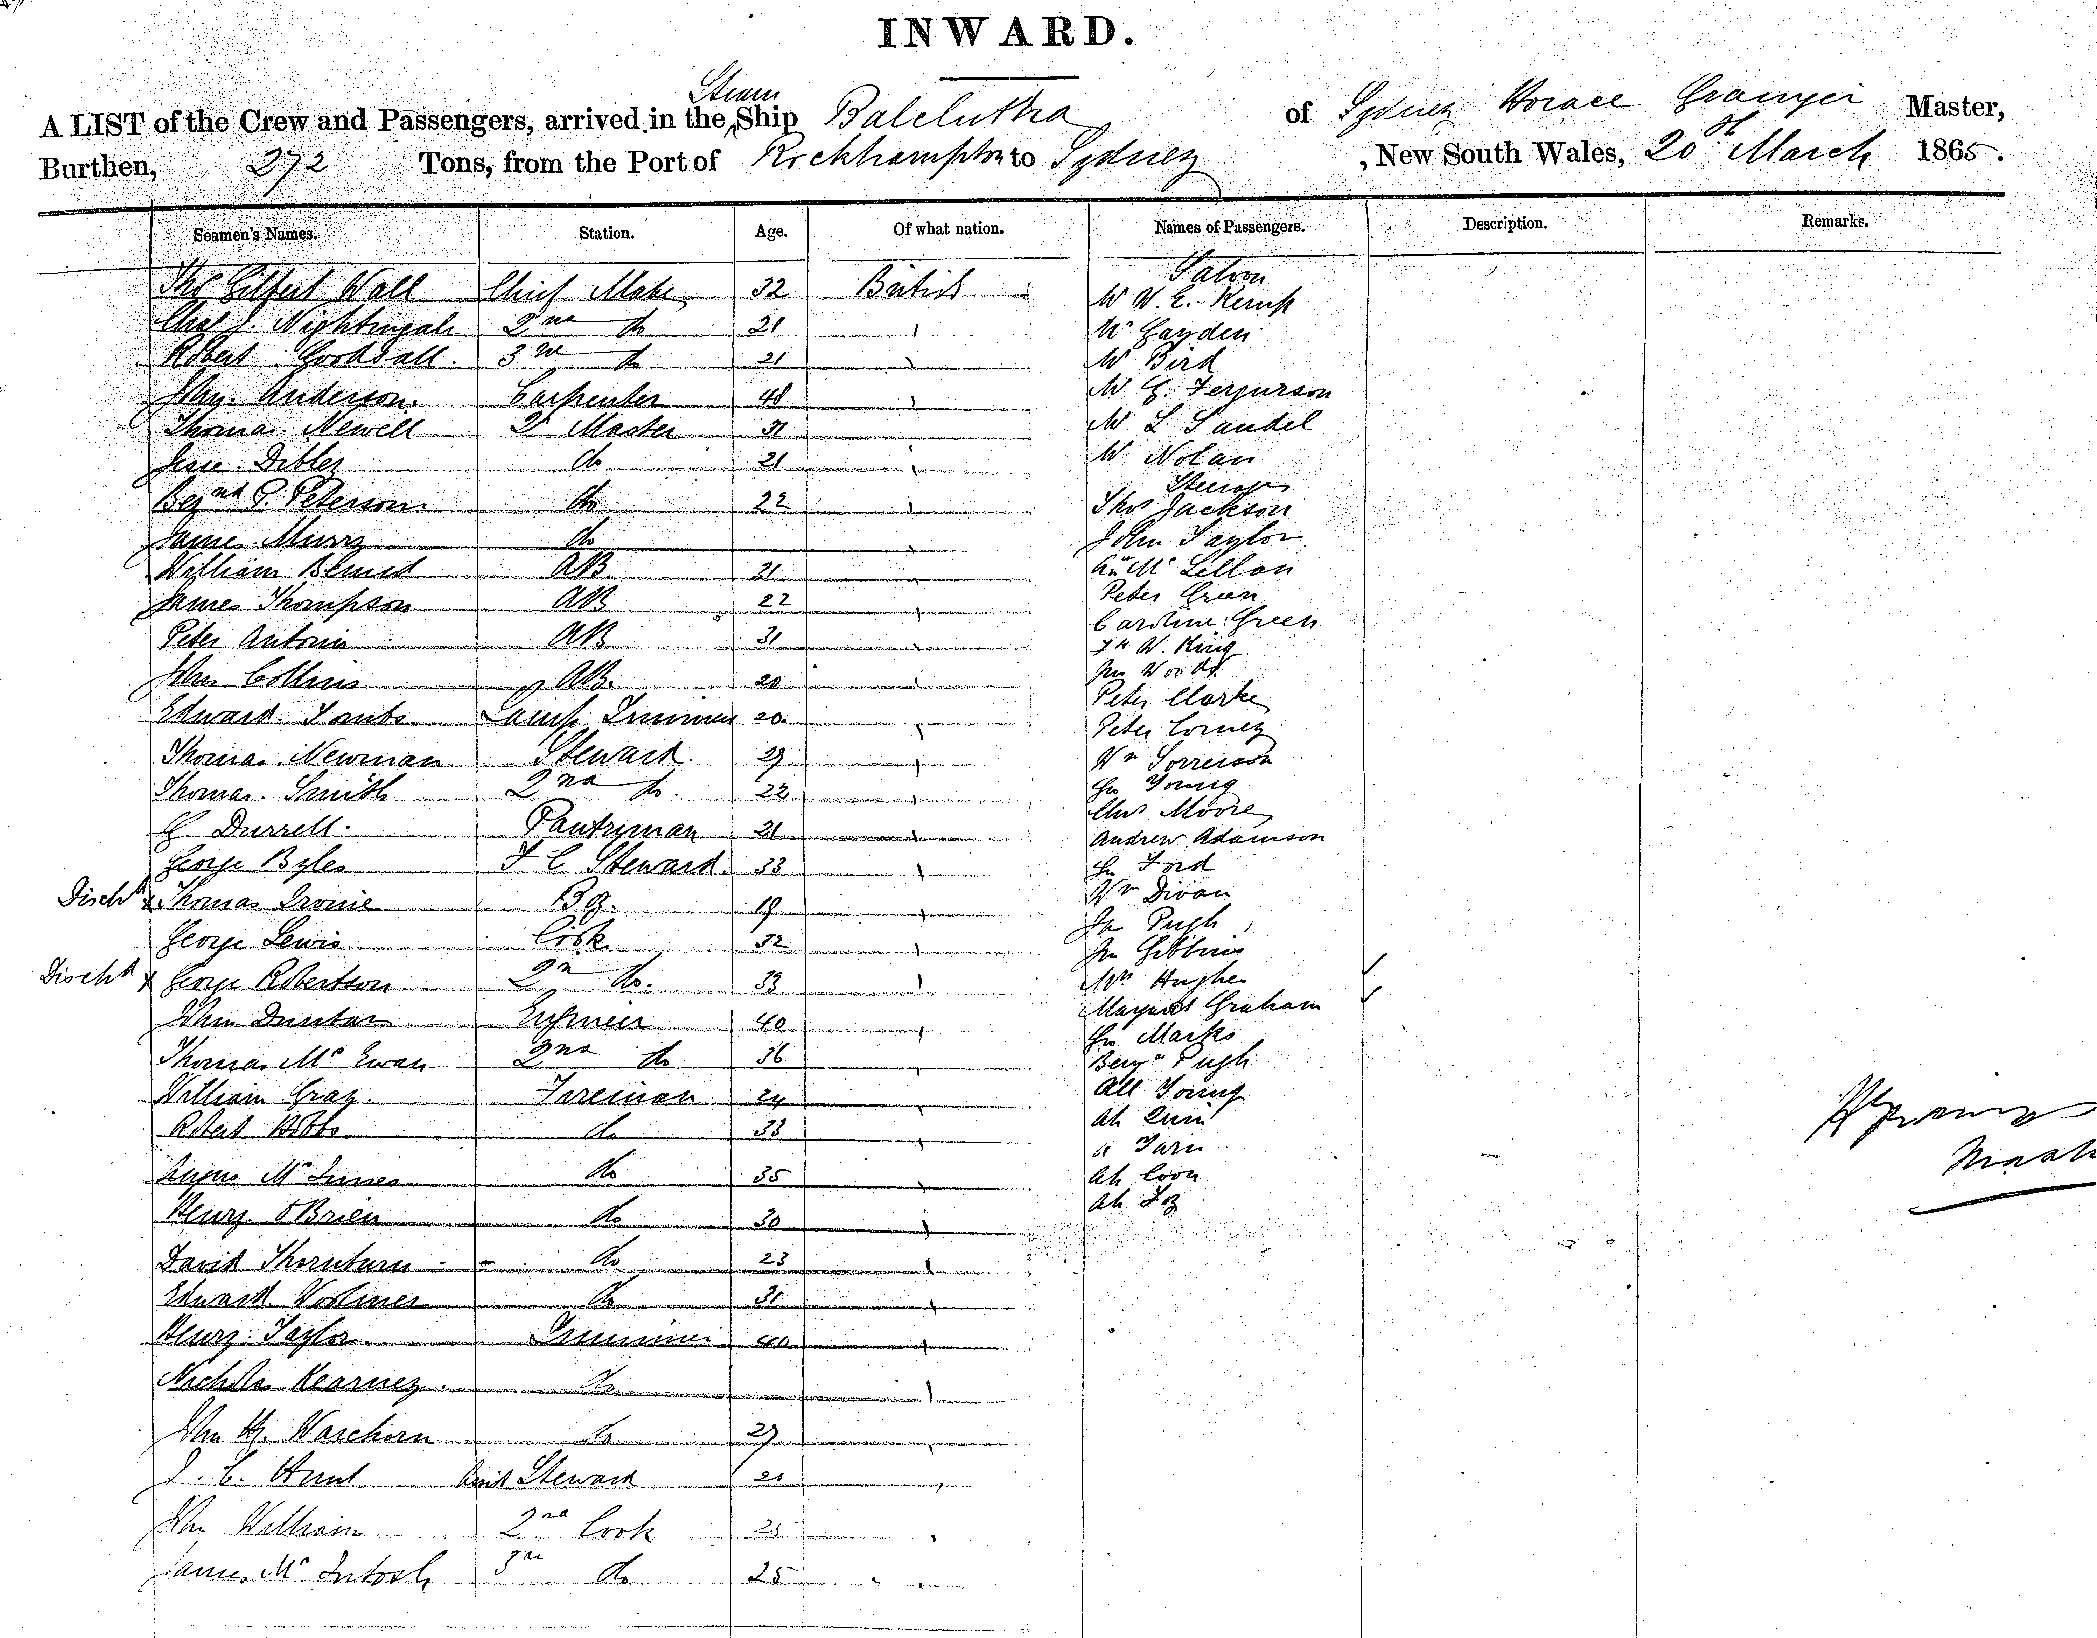 INWARD.
Steam
A LIST of the Crew and Passengers, arrived in the Ship Balclutha of Sydney Horace Grainger Master,
Burthen, 272 Tons, from the Port of Rockhampton to Sydney, New South Wales, 20th March 1865.
Seamen's Names. Station. Age. Of what nation. Names of Passengers. Description. Remarks.
Thos Gilfert Wall Chief Mate 32 British
Chas J. Nightingale 2nd do 21
Robert Goodall 3rd do 21
John Anderson Carpenter 48
Thomas Newell Qr Master 31
Jesse Dibley do 21
P. Peterson do 22
James Murry do
William AB 21
James Thompson AB 22
Peter Antonio AB 31
John Collins AB. 20
Edward Lamp Trimmer 20
Thomas Newman Steward 29
Thomas Smith 2nd do. 22
Durrell Pantryman 21
George Byles F C Steward 33
Dischd x Thomas Irvine Boy 19
George Lewis Cook 32
Dischd x George Robertson 2nd do. 33
John Dunbar Engineer 40
Thomas Mc Ewan 2nd do 36
William Gray Fireman 24
Robert Hobbs do 33
Angus Mc Innes do 35
Henry O'Brien do 30
David Thornburn do 23
Edward do 31
Henry Taylor Trimmer 40
Nicholas Kearney do
John H. Warehorn do 27
J. C. Hunt Steward 20
John William 2nd Cook 25
James Mc Intosh 3rd do 25
Saloon
Mr W. E. Kemp
Mr Gayden
Mr Bird
Mr G. Fergurson
Mr L Sandel
Mr Nolan
Steerage
Thos Jackson
John Taylor
Mc Lellan
Peter Green
Caroline Green
W. King
Jn Woods
Peter Clarke
Peter Corney
Wm Sorrerson
Jn Young
Chas Moore
Andrew Adamson
Jn Ford
Wm Divan
Jn Pugh
Jn Gibbins
Mrs Hughes
Margaret Graham
Jn Marks
Benjn Pugh
All Young
Ah Quin
a Tarn
Ah Coon
Ah Foy